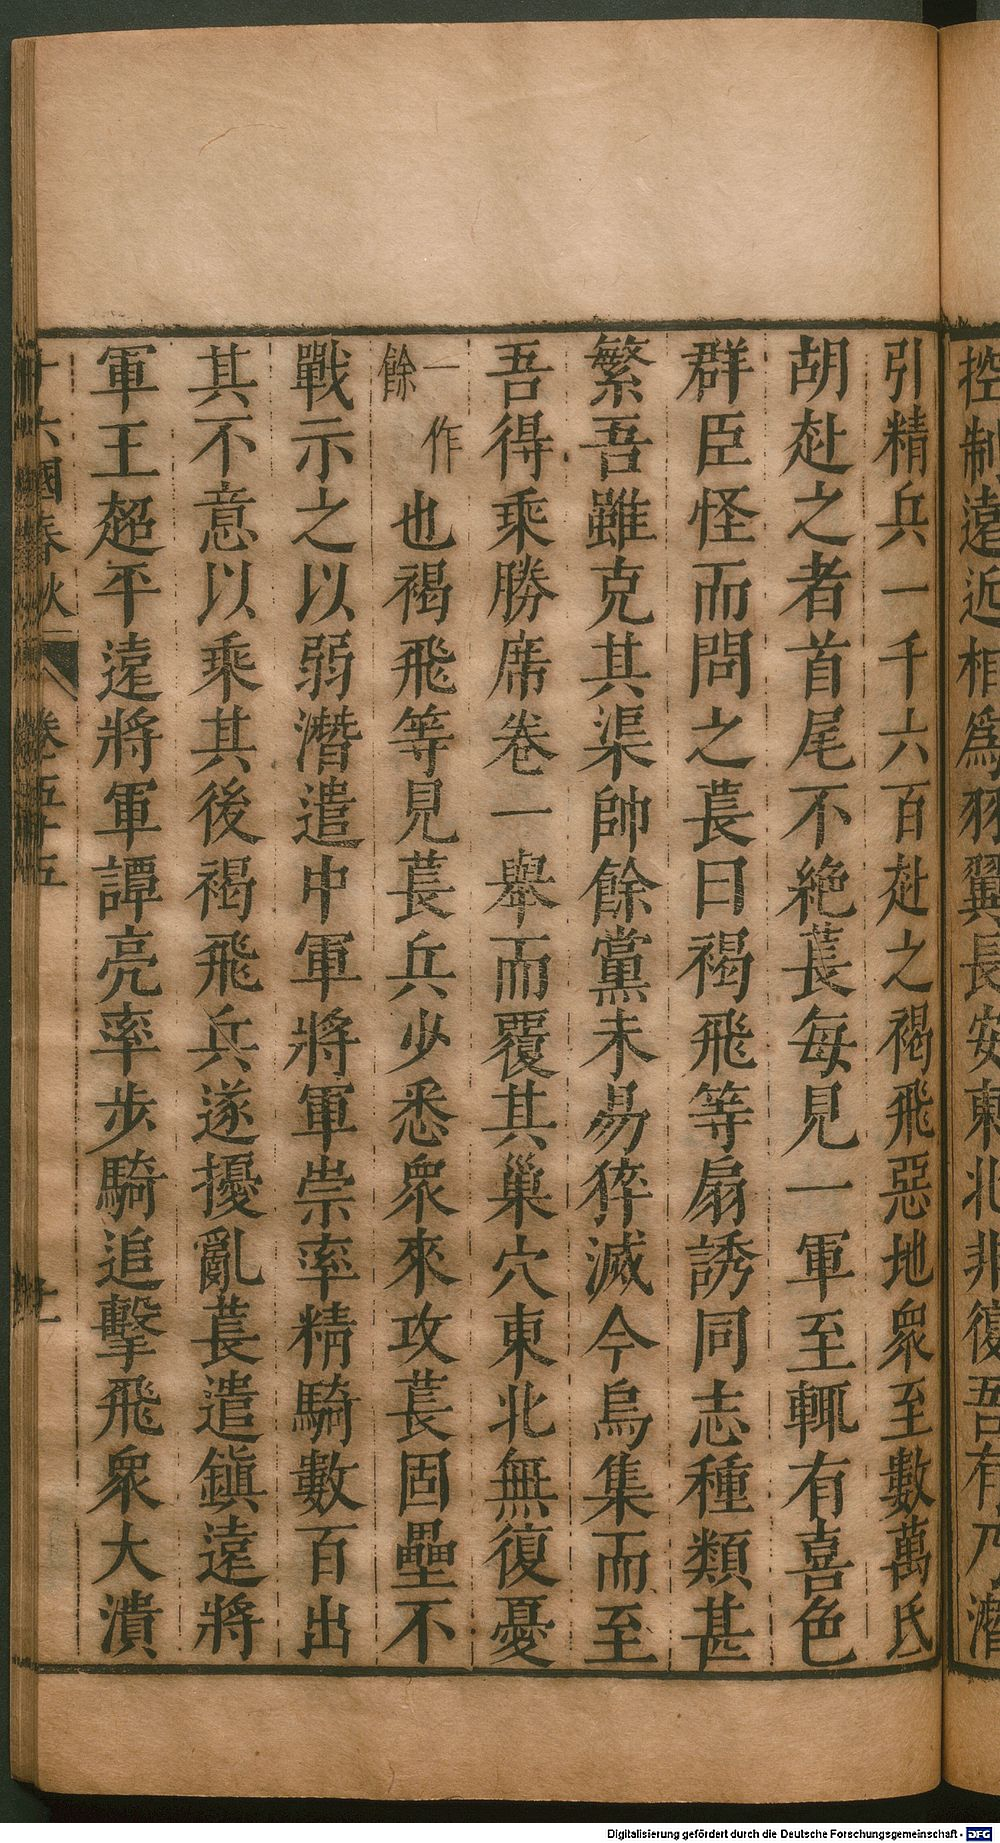 控制遠近相爲羽翼長安東北非復吾有乃潛
引精兵一千六百赴之褐飛惡地衆至數萬氐
胡赴之者首尾不絶萇每見一軍至輒有喜色
群臣怪而問之萇曰褐飛等扇誘同志種類甚
繁吾雖克其渠帥餘黨未易猝滅今烏集而至
吾得乘勝席卷一舉而覆其巢穴東北無復憂
一作
餘
也褐飛等見萇兵少悉衆來攻萇固壘不
戰示之以弱潛遣中軍將軍崇率精騎數百出
其不意以乘其後褐飛兵遂擾亂萇遣鎭遠將
軍王超平遠將軍譚亮率步騎追擊飛衆大潰
十六國春秋 卷五十五
Digitalisierung gefördert durch die Deutsche Forschungsgemeinschaft - DFG